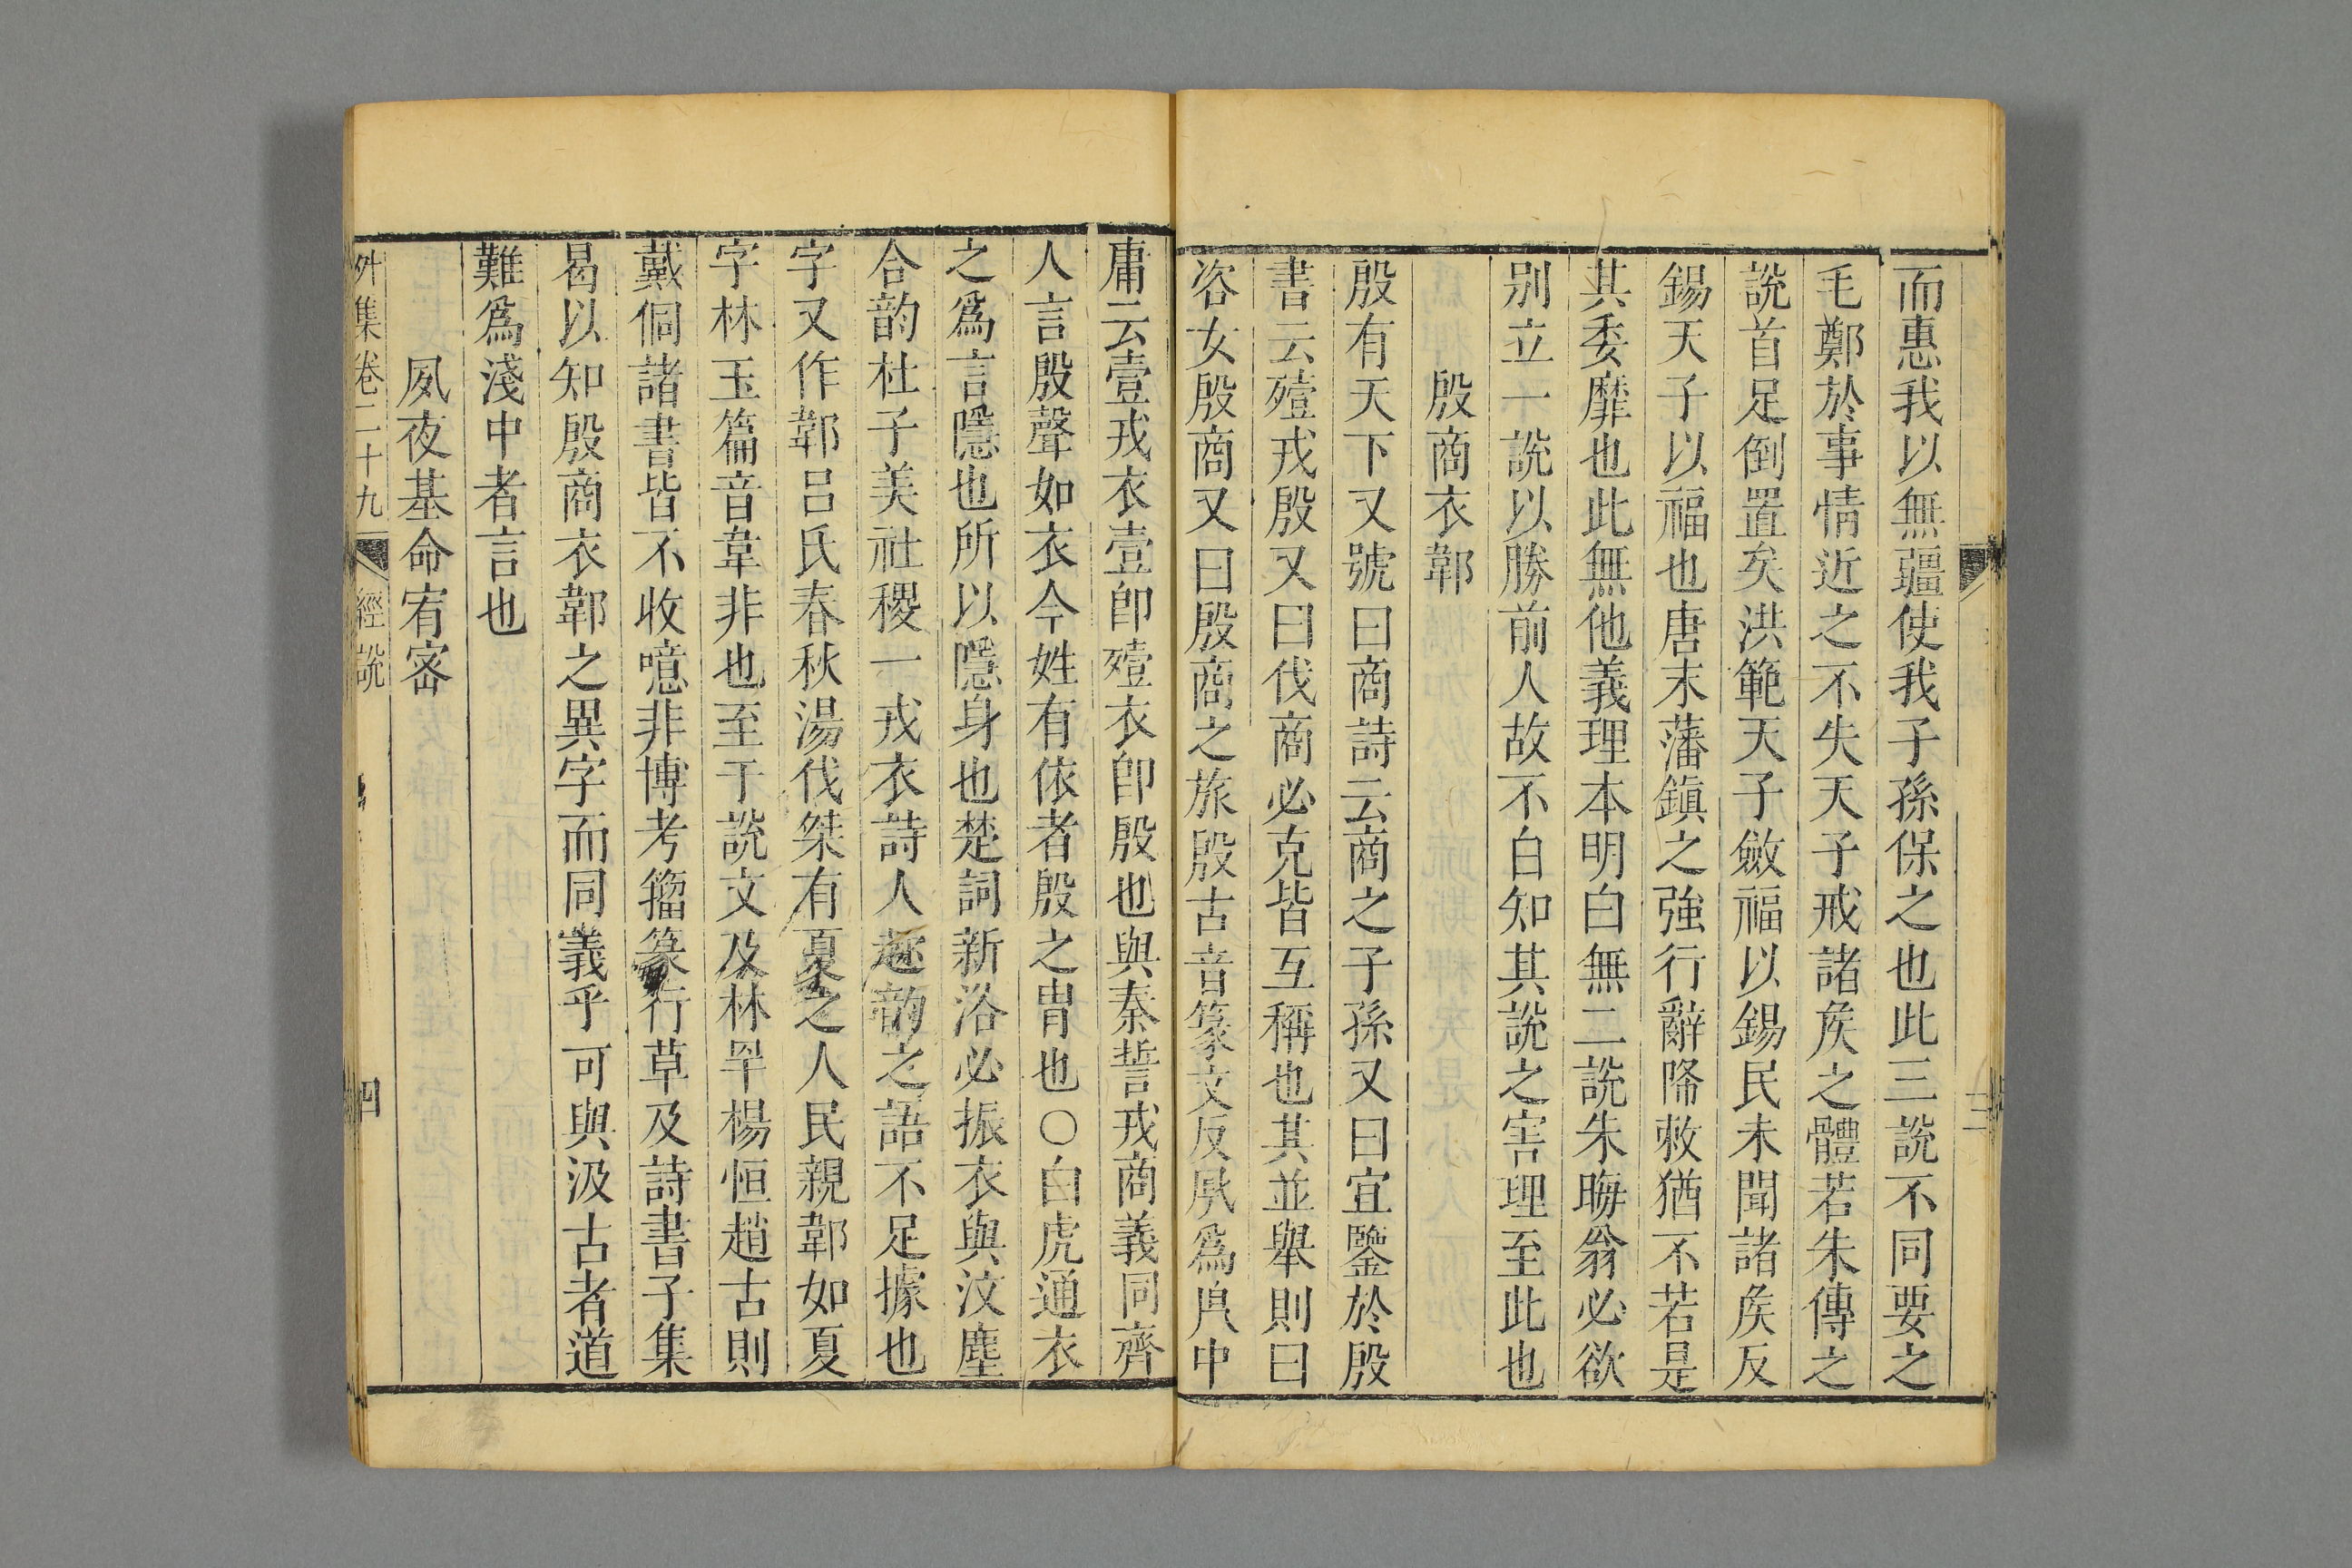 而惠我以無疆使我子孫保之也此三說不同要之
毛鄭於事情近之不失天子戒諸矦之體若朱傳之
說首足倒置矣洪範天子斂福以錫民未聞諸矦反
錫天子以福也唐末藩鎮之強行辭降敕猶不若是
其委靡也此無他義理本明白無二說朱晦翁必欲
别立一說以勝前人故不自知其說之害理至此也
殷商衣鄣
殷有天下又號曰商詩云商之子孫又曰宜鑒於殷
書云殪戎殷又曰伐商必克皆互稱也其並舉則曰
咨女殷商又曰殷商之旅殷古音篆文反𠂣爲㐆中
庸云壹戎衣壹卽殪衣卽殷也與秦誓戎商義同齊
人言殷聲如衣今姓有依者殷之冑也○白虎通衣
之爲言隱也所以隱身也楚詞新浴必振衣與汶塵
合韵杜子美社稷一戎衣詩人趂韵之語不足據也
字又作鄣吕氏春秋湯伐桀有夏之人民親鄣如夏
字林玉篇音韋非也至于說文及林罕楊恒趙古則
戴侗諸書皆不收噫非博考籀篆行草及詩書子集
曷以知殷商衣鄣之異字而同義乎可與汲古者道
難爲淺中者言也
夙夜基命宥宻
外集卷二十九 經說 四
三